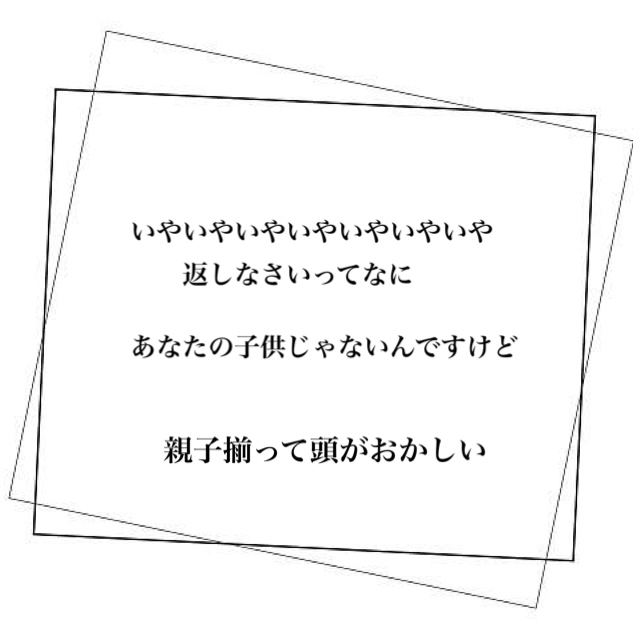 いやいやいやいやいやいやいや
返しなさいってなに
あなたの子供じゃないんですけど
親子揃って頭がおかしい